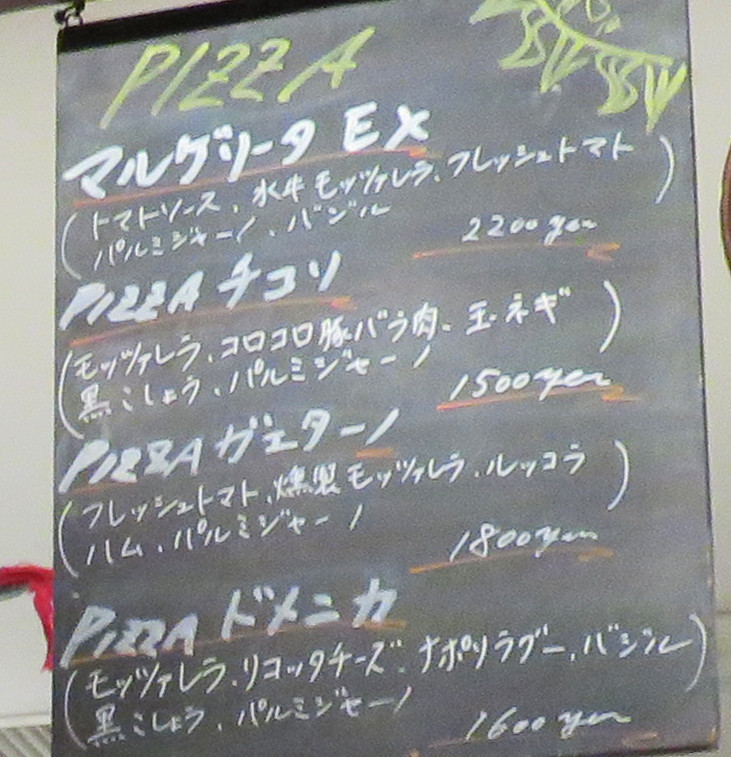 PIZZA
マルゲリータ EX
(トマトソース、水牛モッツァレラ、フレッシュトマト
パルミジャーノ、バジル)
2200yen
PIZZA チコリ
(モッツァレラ、コロコロ豚バラ肉、玉ネギ
黒こしょう、パルミジャーノ)
1500yen
PIZZA ガエターノ
(フレッシュトマト、燻製モッツァレラ、ルッコラ
ハム、パルミジャーノ)
1800yen
PIZZA ドメニカ
(モッツァレラ、リコッタチーズ、ナポリラグー、バジル
黒こしょう、パルミジャーノ)
1600yen